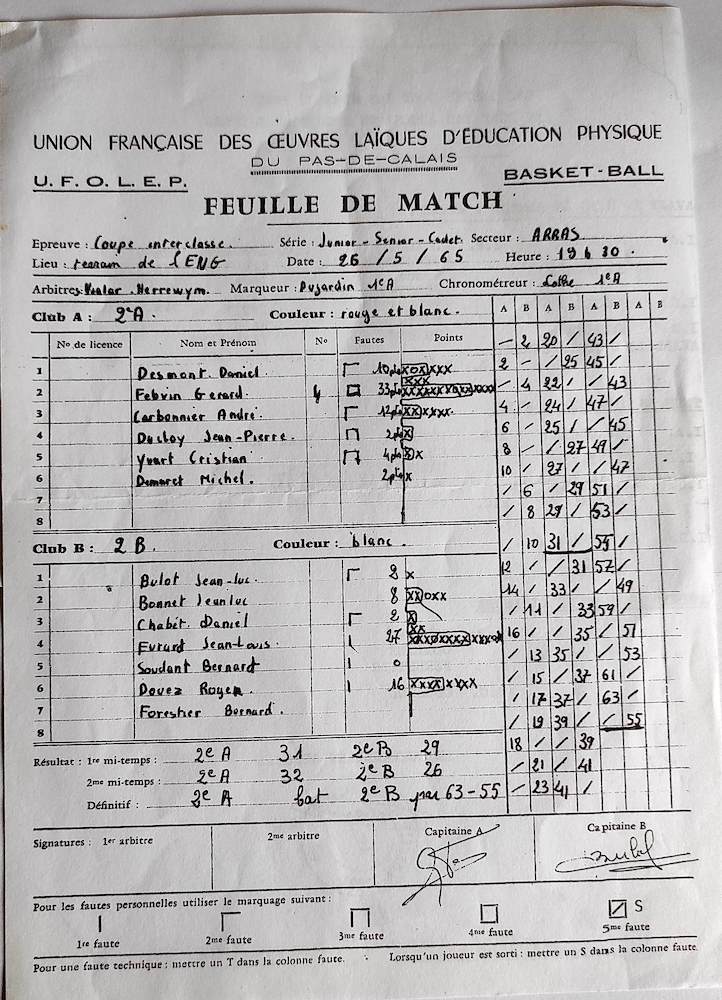 UNION FRANÇAISE DES ŒUVRES LAÏQUES D'ÉDUCATION PHYSIQUE
DU PAS-DE-CALAIS
U. F. O. L. E. P. BASKET-BALL
FEUILLE DE MATCH
Epreuve : Coupe interclasse. Série : Junior-Senior-Cadet. Secteur : ARRAS
Lieu : terrain de l'ENG Date : 26 / 5 / 65 Heure : 19 h 30
Arbitres: Marqueur : Dujardin 1eA Chronométreur : 1eA
Club A : 2eA Couleur : rouge et blanc. A B A B A B A B
No de licence Nom et Prénom No Fautes Points - 2 20 / 43 /
1 Desmont Daniel. 10pts XOXXXX 2 - / 25 45 /
2 Febvin Gerard. 4 33pts - 4 22 / / 43
3 Carbonnier André. 12pts XXXXXX 4 - 24 / 47 /
4 Ducloy Jean-Pierre. 2pts X 6 - 25 / / 45
5 Yvart Cristian 4pts 8 - / 27 49 /
6 Demaret Michel. 2pts X 10 / 27 / / 47
7 / 6 / 29 51 /
8 / 8 29 / 53 /
Club B : 2 B. Couleur : blanc. / 10 31 / 55 /
1 Bulot Jean-luc. 2 X 12 / / 31 57 /
2 Bonnet Jeanluc 8 XXOXX 14 / 33 / / 49
3 Chabét. Daniel 2 X / 11 / 33 59 /
4 Evrard Jean-Louis. 27 16 / / 35 / 51
5 Soudant Bernard 0 / 13 35 / / 53
6 Douez Roger. 16 XXXXXXXX / 15 / 37 61 /
7 Forestier Bernard. / 17 37 / 63 /
8 / 19 39 / / 55
Résultat : 1re mi-temps : 2e A 31 2e B 29 18 / / 39
2me mi-temps : 2e A 32 2e B 26 / 21 / 41
Définitif : 2e A bat 2e B par 63-55 / 23 41 /
Signatures : 1er arbitre 2me arbitre Capitaine A Capitaine B
Pour les fautes personnelles utiliser le marquage suivant :
S
1re faute 2me faute 3me faute 4me faute 5me faute
Pour une faute technique : mettre un T dans la colonne faute. Lorsqu'un joueur est sorti : mettre un S dans la colonne faute.